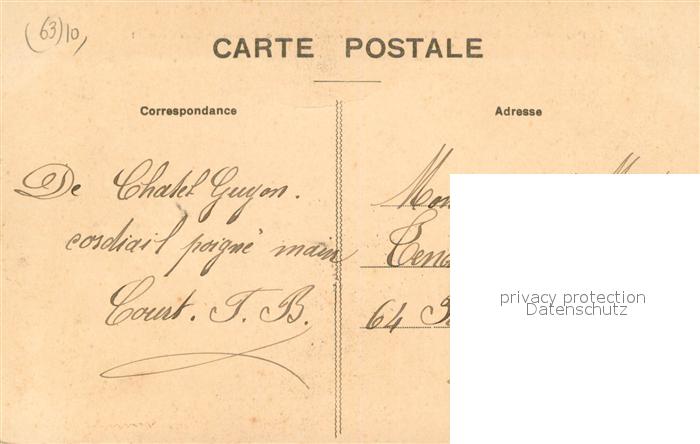 (63)10
CARTE POSTALE
Correspondance
Adresse
De Chatel Guyon.
cordiail poigné main
Court. T. B.
64
privacy protection
Datenschutz